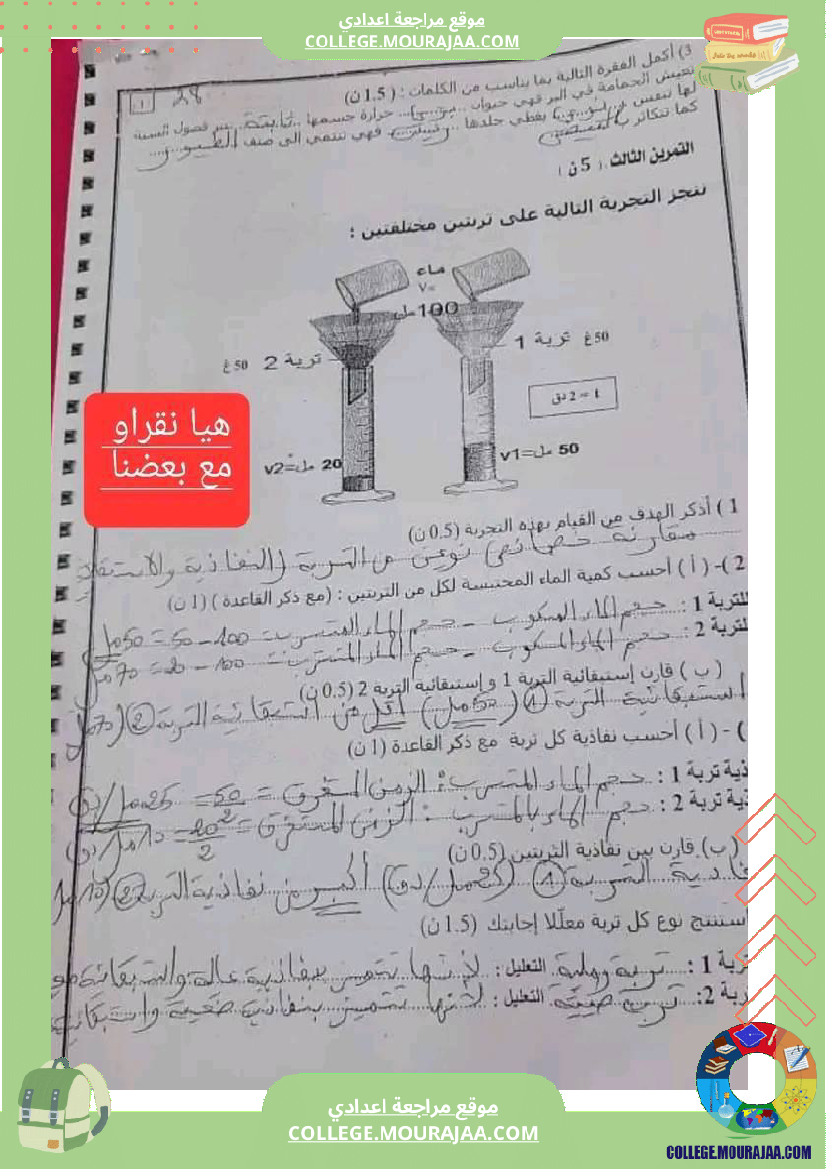 موقع مراجعة اعدادي
COLLEGE.MOURAJAA.COM
3) أكمل الفقرة التالية بما يناسب من الكلمات : ( 1.5 ن)
تعيش الحمامة في البر فهي حيوان ... حرارة جسمها ..ثابتة.. عبر فصول السنة
لها تنفس ... يغطي جلدها ..ريش.. فهي تنتمي الى صنف الطيور
كما تتكاثر ب
1
التمرين الثالث ( 5 ن )
ننجز التجربة التالية على تربتين مختلفتين :
ماء
V=
100مل
50 غ تربة 1
تربة 2 50 غ
t = 2 دق
v1=50 مل
v2=20 مل
هيا نقراو
مع بعضنا
1 ) أذكر الهدف من القيام بهذه التجربة (0.5 ن)
مقارنة خصائص نوعين من التربة (النفاذية والاستبقائية
2 )- ( أ ) أحسب كمية الماء المحتبسة لكل من التربتين : (مع ذكر القاعدة ) (1 ن)
للتربة 1 : حجم الماء المسكوب - حجم الماء المتسرب = 100 - 50 = 50مل
للتربة 2 : حجم الماء المسكوب - حجم الماء المتسرب = 100 - 20 = 70 مل
( ب ) قارن إستبقائية التربة 1 و إستبقائية التربة 2 (0.5 ن)
استبقائية التربة 1 (50مل) أقل من استبقائية التربة 2 (70مل
) - ( أ ) أحسب نفاذية كل تربة مع ذكر القاعدة (1 ن)
ذية تربة 1 : حجم الماء المتسرب : الزمن المستغرق = 50/2 = 25 مل/دق
ذية تربة 2 : حجم الماء المتسرب : الزمن المستغرق = 20/2 = 10 مل/دق
( ب) قارن بين نفاذية التربتين (0.5 ن)
فاذية التربة 1 (25مل/دق) أكبر من نفاذية التربة 2 (10مل
أستنتج نوع كل تربة معلّلا إجابتك (1.5 ن)
ربة 1 : تربة رملية التعليل : لأنها تتميز بنفاذية عالية واستبقائية
ربة 2: تربة طينية التعليل : لأنها تتميز بنفاذية ضعيفة واستبقائية
موقع مراجعة اعدادي
COLLEGE.MOURAJAA.COM
COLLEGE.MOURAJAA.COM